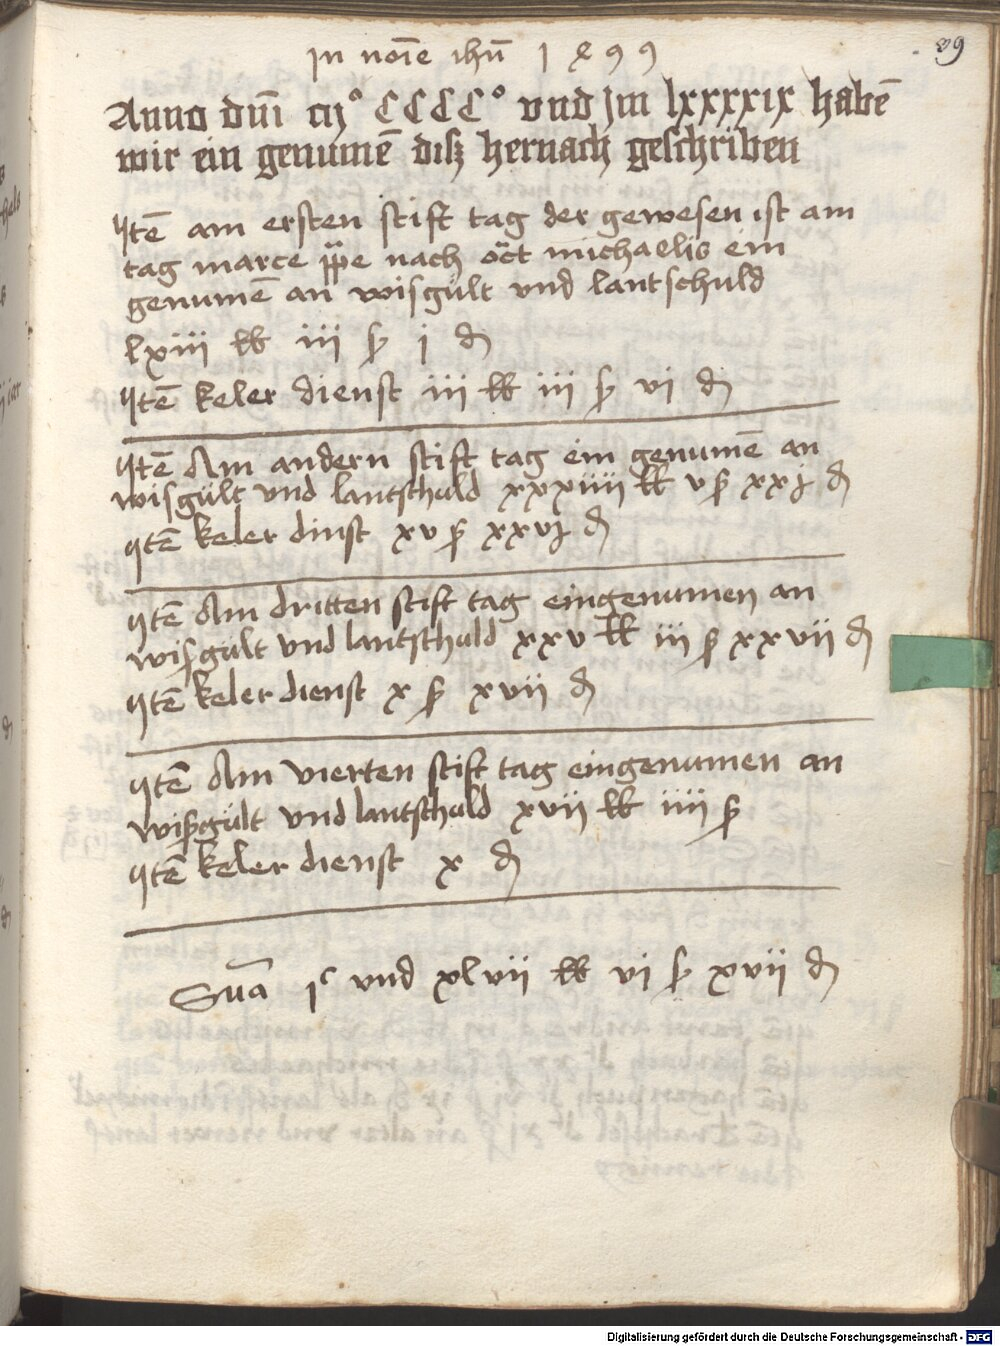 89
In noīe ihū 1499
Anno dnī m° CCCC° vnd Jm lxxxxix habē
wir ein genumē disz hernach geschriben
Itē am ersten stift tag der gewesen ist am
tag marce ppe nach oct michaelis ein
genumē an wisgült vnd lantschuld
lxiii lb iii ß i ₰
Itē keler dienst iii lb iii ß vi ₰
Itē Am andern stift tag ein genumē an
wisgült vnd lantschuld xxxiiii lb v ß xxj ₰
Itē keler dinst xv ß xxvj ₰
Itē Am dritten stift tag eingenumen an
wisgült vnd lantschuld xxv lb iii ß xxvii ₰
Itē keler dienst x ß xvii ₰
Itē Am vierten stift tag eingenumen an
wisgült vnd lantschuld xvii lb iiii ß
Itē keler dienst x ₰
Suā jᶜ vnd xlvii lb vi ß xvii ₰
Digitalisierung gefördert durch die Deutsche Forschungsgemeinschaft - DFG